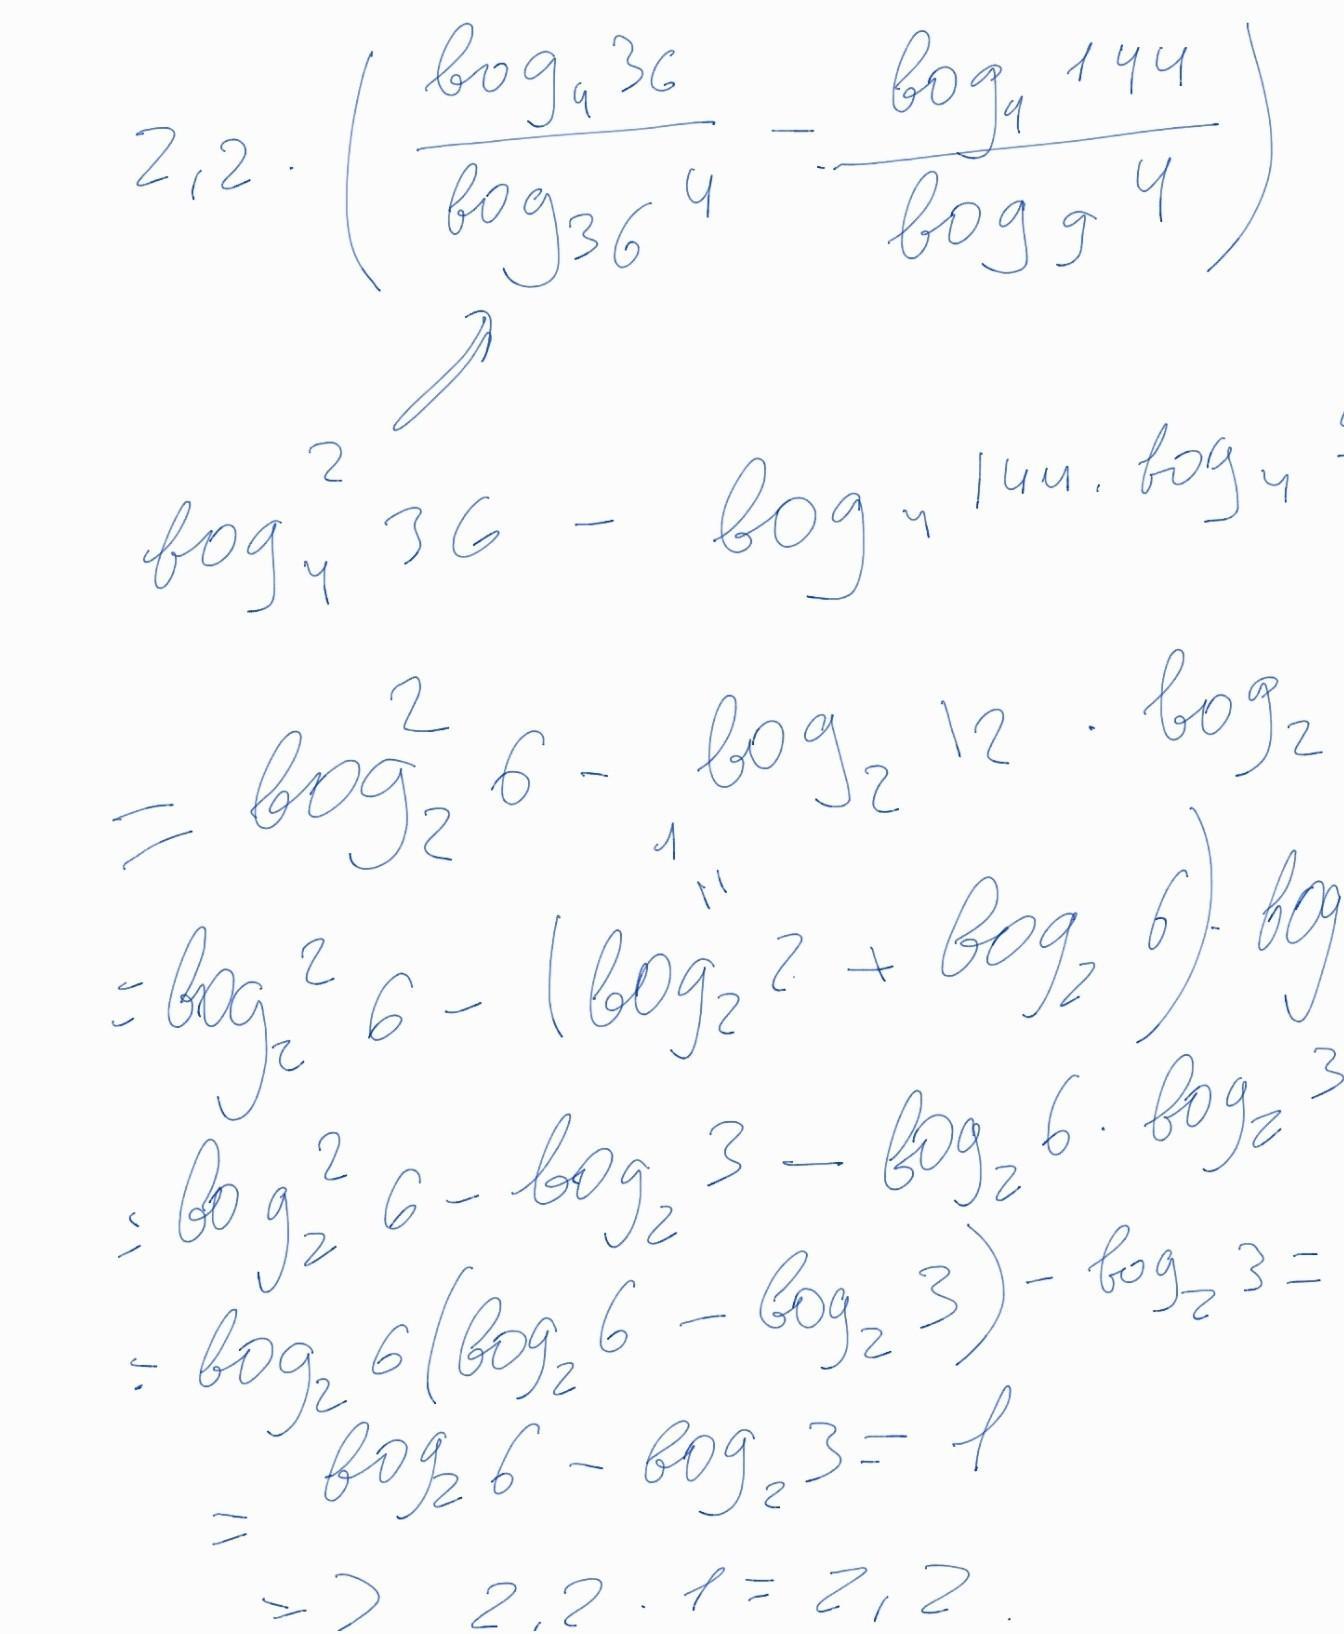 2,2 · ( log₄ 36 / log₃₆ 4 − log₄ 144 / log₉ 4 )
log₄² 36 − log₄ 144 · log₄
= log₂² 6 − log₂ 12 · log₂
1
"
= log₂² 6 − (log₂ 2 + log₂ 6) · log
= log₂² 6 − log₂ 3 − log₂ 6 · log₂ 3
= log₂ 6 (log₂ 6 − log₂ 3) − log₂ 3 =
= log₂ 6 − log₂ 3 = 1
=> 2,2 · 1 = 2,2.